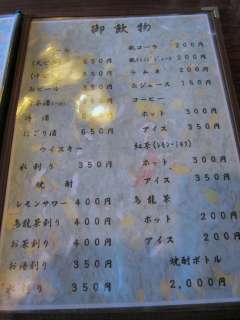 御飲物
ビール
(大ビン) 650円
550円
生ビール 550円
350円
冷酒
にごり酒 650円
ウイスキー
水割り 350円
焼酎
レモンサワー 400円
烏龍茶割り 400円
お茶割り 400円
お湯割り 350円
水割り 350円
瓶コーラ 200円
200円
ラムネ 200円
缶ジュース 150円
コーヒー
ホット 300円
アイス 350円
紅茶(レモン・ミルク)
ホット 300円
アイス 350円
烏龍茶
ホット 200円
アイス 200円
焼酎ボトル
2,000円